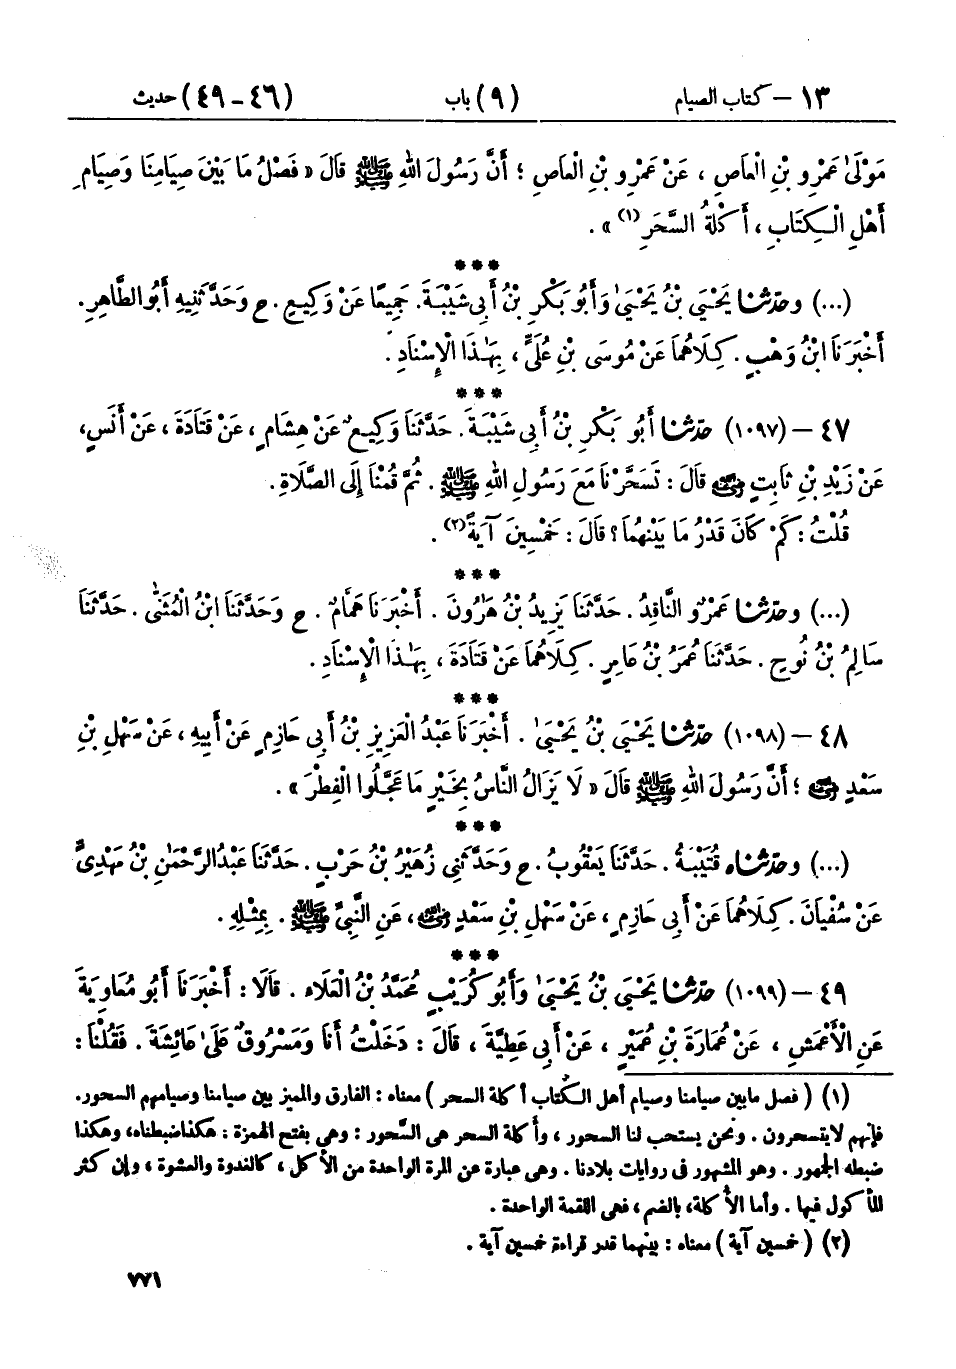 ١٣ – كتاب الصيام (٩) باب (٤٦ – ٤٩) حديث
مَوْلَىٰ عَمْرِو بْنِ الْعَاصِ ، عَنْ عَمْرِو بْنِ الْعَاصِ ؛ أَنَّ رَسُولَ اللهِ ﷺ قَالَ « فَصْلُ مَا بَيْنَ صِيَامِنَا وَصِيَامِ
أَهْلِ الْكِتَابِ ، أَكْلَةُ السَّحَرِ (١) » .
***
(...) وحدّثنا يَحْيَى بْنُ يَحْيَىٰ وَأَبُو بَكْرِ بْنُ أَبِي شَيْبَةَ. جَمِيعًا عَنْ وَكِيعٍ . ح وَحَدَّثَنِيهِ أَبُو الطَّاهِرِ.
أَخْبَرَنَا ابْنُ وَهْبٍ . كِلَاهُمَا عَنْ مُوسَى بْنِ عُلَيٍّ ، بِهَٰذَا الْإِسْنَادِ .
***
٤٧ – (١٠٩٧) حدّثنا أَبُو بَكْرِ بْنُ أَبِي شَيْبَةَ. حَدَّثَنَا وَكِيعٌ عَنْ هِشَامٍ ، عَنْ قَتَادَةَ ، عَنْ أَنَسٍ،
عَنْ زَيْدِ بْنِ ثَابِتٍ رضي الله عنه قَالَ : تَسَحَّرْنَا مَعَ رَسُولِ اللهِ ﷺ . ثُمَّ قُمْنَا إِلَى الصَّلَاةِ .
قُلْتُ : كَمْ كَانَ قَدْرُ مَا بَيْنَهُمَا ؟ قَالَ : خَمْسِينَ آيَةً (٢) .
***
(...) وحدّثنا عَمْرٌو النَّاقِدُ . حَدَّثَنَا يَزِيدُ بْنُ هَارُونَ . أَخْبَرَنَا هَمَّامٌ . ح وَحَدَّثَنَا ابْنُ الْمُثَنَّى . حَدَّثَنَا
سَالِمُ بْنُ نُوحٍ . حَدَّثَنَا عُمَرُ بْنُ عَامِرٍ . كِلَاهُمَا عَنْ قَتَادَةَ ، بِهَٰذَا الْإِسْنَادِ .
***
٤٨ – (١٠٩٨) حدّثنا يَحْيَى بْنُ يَحْيَىٰ . أَخْبَرَنَا عَبْدُ الْعَزِيزِ بْنُ أَبِي حَازِمٍ عَنْ أَبِيهِ ، عَنْ سَهْلِ بْنِ
سَعْدٍ رضي الله عنه ؛ أَنَّ رَسُولَ اللهِ ﷺ قَالَ « لَا يَزَالُ النَّاسُ بِخَيْرٍ مَا عَجَّلُوا الْفِطْرَ » .
***
(...) وحدّثناه قُتَيْبَةُ . حَدَّثَنَا يَعْقُوبُ . ح وَحَدَّثَنِي زُهَيْرُ بْنُ حَرْبٍ . حَدَّثَنَا عَبْدُالرَّحْمَٰنِ بْنُ مَهْدِيٍّ
عَنْ سُفْيَانَ . كِلَاهُمَا عَنْ أَبِي حَازِمٍ ، عَنْ سَهْلِ بْنِ سَعْدٍ رضي الله عنه ، عَنِ النَّبِيِّ ﷺ . بِمِثْلِهِ .
***
٤٩ – (١٠٩٩) حدّثنا يَحْيَى بْنُ يَحْيَىٰ وَأَبُو كُرَيْبٍ مُحَمَّدُ بْنُ الْعَلَاءِ . قَالَا : أَخْبَرَنَا أَبُو مُعَاوِيَةَ
عَنِ الْأَعْمَشِ ، عَنْ عُمَارَةَ بْنِ عُمَيْرٍ ، عَنْ أَبِي عَطِيَّةَ ، قَالَ : دَخَلْتُ أَنَا وَمَسْرُوقٌ عَلَىٰ عَائِشَةَ . فَقُلْنَا :
(١) ( فصل مابين صيامنا وصيام أهل الكتاب أكلة السحر ) معناه : الفارق والمميز بين صيامنا وصيامهم السحور.
فإنهم لايتسحرون . ونحن يستحب لنا السحور ، وأكلة السحر هى السَّحور : وهى بفتح الهمزة : هكذا ضبطناه، وهكذا
ضبطه الجمهور . وهو المشهور فى روايات بلادنا . وهى عبارة عن المرة الواحدة من الأكل ، كالغدوة والعشوة ، وإن كثر
المأكول فيها . وأما الأُكلة، بالضم ، فهى اللقمة الواحدة .
(٢) ( خمسين آية ) معناه : بينهما قدر قراءة خمسين آية .
٧٧١